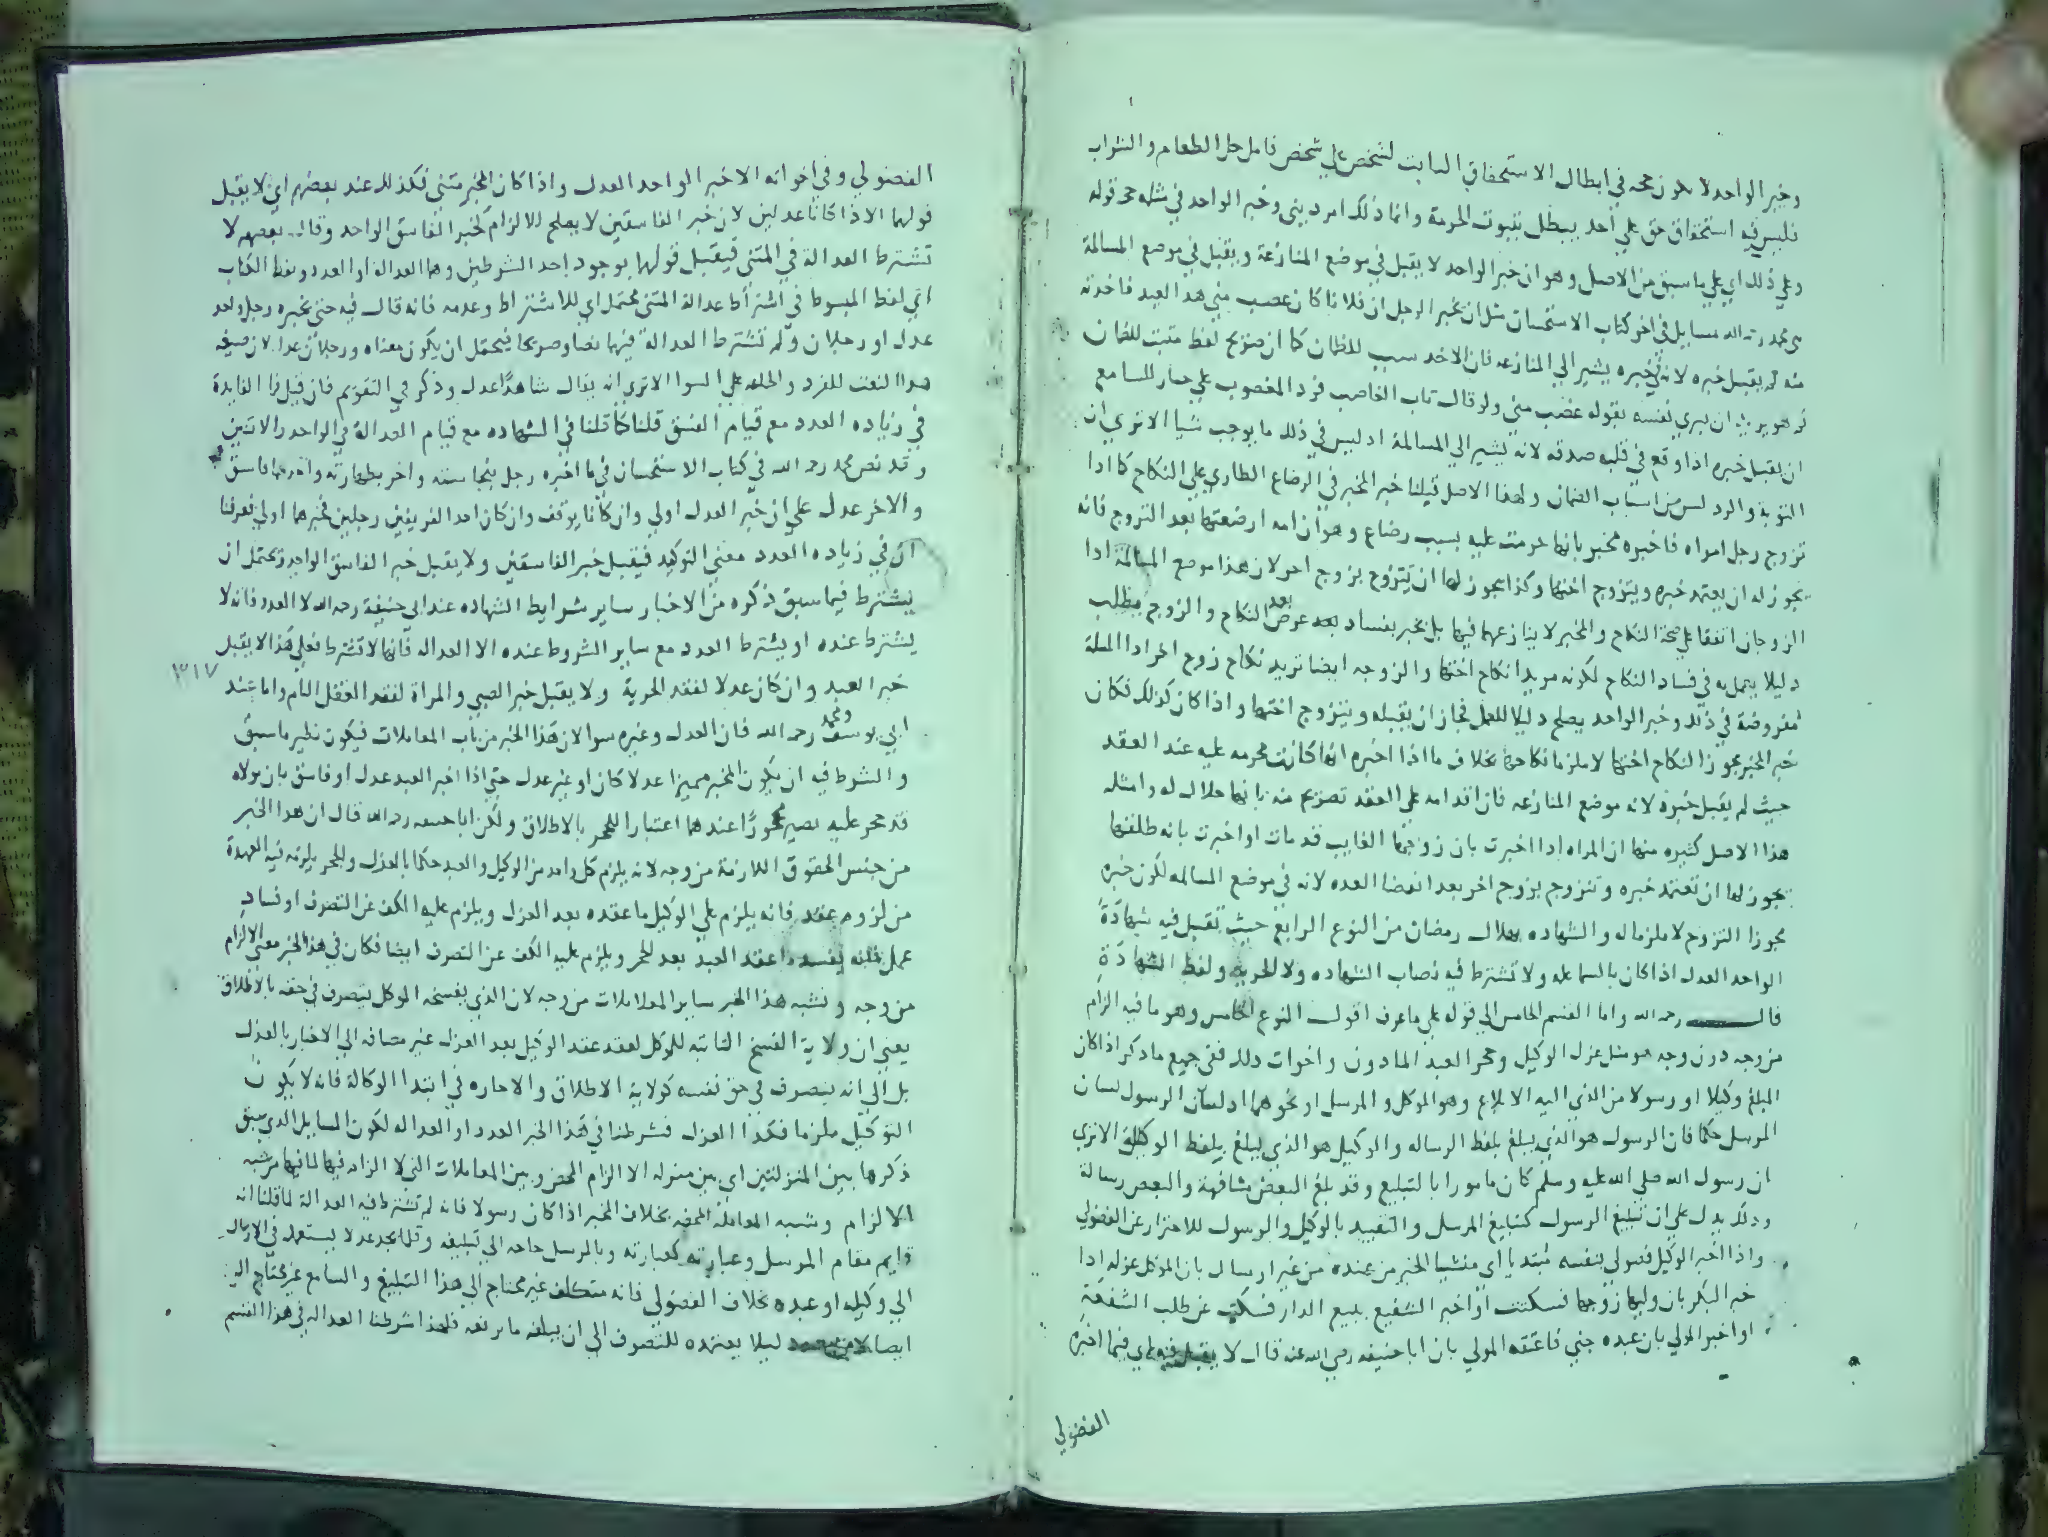 وخبر الواحد لا يكون حجه في ابطال الاستحقاق الثابت لشخص علي شخص فامل حل الطعام والشراب
فليس فيه استحقاق حق علي احد يبطل بثبوت الحرمة وانما ذلك امر ديني وخبر الواحد في مثله حجه قوله
وعلي ذلك اي علي ما سبق من الاصل وهو ان خبر الواحد لا يقبل في موضع المنازعة ويقبل في موضع المسالمة
محمد رحمه الله مسايل في اخر كتاب الاستحسان مثل ان يخبر الرجل ان فلانا كان غصب مني هذا العبد فاخذته
منه لم يقبل خبره لانه في خبره يشير الي المنازعه فان الاخذ سبب للضمان كما ان صريح لفظ مثبت للضمان
ان يبري نفسه بقوله غصب مني ولو قال تاب الغاصب فرد المغصوب علي جاز للسامع
ان يقبل خبره اذا وقع في قلبه صدقه لانه يشير الي المسالمة اذ ليس في ذلك ما يوجب شيا الا تري ان
التوبة والرد ليس من اسباب الضمان ولهذا الاصل قبلنا خبر المخبر في الرضاع الطاري علي النكاح كما اذا
تزوج رجل امراه فاخبره مخبر بانها حرمت عليه بسبب رضاع وهو ان امه ارضعتها بعد التزوج فانه
يجوز له ان يعتمد خبره ويتزوج اختها وكذا يجوز لها ان يتزوج بزوج اخر لان هذا موضع المسالمة اذا
الزوجان اتفقا علي صحة النكاح والمخبر لا ينازعهما فيها بل يخبر بفساد بعد عرض النكاح والزوج يطلب
دليلا يعمل به في فساد النكاح لكونه مريدا نكاح اختها والزوجه ايضا تريد نكاح زوج اخر اذا المسلة
مفروضة في ذلك وخبر الواحد يصلح دليلا للعمل فجاز ان يقبله ويتزوج اختها واذا كان كذلك فكان
خبر المخبر مجوزا لنكاح اختها لا ملزما نكاحها بخلاف ما اذا اخبره انها كانت محرمه عليه عند العقد
حيث لم يقبل خبره لانه موضع المنازعه فان اقدامه علي العقد تصريح منه بانها حلال له وامثله
هذا الاصل كثيره منها ان المراه اذا اخبرت بان زوجها الغايب قد مات او اخبرت بانه طلقها
يجوز لها ان تعتمد خبره وتتزوج بزوج اخر بعد انقضا العده لانه في موضع المسالمه لكون خبره
مجوزا التزوج لا ملزما له والشهاده بهلال رمضان من النوع الرابع حيث تقبل فيه شهادة
الواحد العدل اذا كان بالسما عله ولا تشترط فيه نصاب الشهاده ولا الحرية ولفظ الشهادة
قال رحمه الله واما القسم الخامس الي قوله علي ما عرف اقول النوع الخامس وهو ما فيه الزام
من وجه دون وجه هو مثل عزل الوكيل وحجر العبد الماذون واخوات ذلك ففي جميع ما ذكر اذا كان
المبلغ وكيلا او رسولا من الذي اليه الابلاغ وهو الموكل والمرسل او نحوهما اذ لسان الرسول لسان
المرسل حكما فان الرسول هو الذي يبلغ بلفظ الرساله والوكيل هو الذي يبلغ بلفظ الوكيل الا تري
ان رسول الله صلي الله عليه وسلم كان مامورا بالتبليغ وقد بلغ البعض مشافهة والبعض رسالة
وذلك يدل علي ان تبليغ الرسول كتبليغ المرسل والتقييد بالوكيل والرسول للاحتراز عن الفضولي
واذا اخبر الوكيل فضولي بنفسه مبتديا اي منشيا الخبر من عنده من غير ارسال بان الموكل عزله اذا
خبر البكر بان وليها زوجها فسكتت او اخبر الشفيع ببيع الدار فسكت عن طلب الشفعة
او اخبر المولي بان عبده جني فاعتقه المولي بان ابا حنيفه رضي الله عنه قال لا يقبل فيه اي فيما اخبره
الفضولي
الفضولي وفي اخواته الا خبر الواحد العدل واذا كان المخبر مثني فكذلك عند بعضهم اي لا يقبل
قولهما الا اذا كانا عدلين لان خبر الفاسقين لا يصلح للالزام كخبر الفاسق الواحد وقال بعضهم لا
تشترط العدالة في المثني فيقبل قولهما بوجود احد الشرطين وهما العدالة او العدد ولفظ الكتاب
اي لفظ المبسوط في اشتراط عدالة المثني محتمل اي للاشتراط وعدمه فانه قال فيه حتي يخبره رجل واحد
عدل او رجلان ولم تشترط العدالة فيهما نصا وصريحا فيحتمل ان يكون معناه ورجلان عدل لان صيغه
هذا النعت للفرد والجماعه علي السوا الا تري انه يقال شاهدا عدل وذكر في التقويم فان قيل فا الفايدة
في زياده العدد مع قيام الفسق قلنا كما قلنا في الشهاده مع قيام العدالة في الواحد والاثنين
وقد نص محمد رحمه الله في كتاب الاستحسان فيما اخبره رجل بنجاسته واخر بطهارته واحدهما فاسق
والاخر عدل علي ان خبر العدل اولي وان كانا يوقف وان كان احد الفريقين رجلين فخبرهما اولي فعرفنا
ان في زياده العدد معني التوكيد فيقبل خبر الفاسقين ولا يقبل خبر الفاسق الواحد ويحتمل ان
يشترط فيما سبق ذكره من الاخبار ساير شرايط الشهاده عند ابي حنيفة رحمه الله لا العدد فانه لا
يشترط عنده او يشترط العدد مع ساير الشروط عنده الا العداله فانها لا تشترط فعلي هذا لا يقبل
٣١٧
خبر العبد وان كان عدلا لفقد الحرية ولا يقبل خبر الصبي والمراة لفقد العقل التام واما عند
ابي يوسف ومحمد رحمه الله فان العدل وغيره سوا لان هذا الخبر من باب المعاملات فيكون نظير ما سبق
والشرط فيه ان يكون المخبر مميزا عدلا كان او غير عدل حتي اذا اخبر العبد عدل او فاسق بان مولاه
قد حجر عليه يصير محجورا عندهما اعتبارا للحجر بالاطلاق ولكن ابا حنيفه رحمه الله قال ان هذا الخبر
من جنس الحقوق اللازمة من وجه لانه يلزم كل واحد من الوكيل والعبد حكما بالعزل والحجر يلزمه فيه العهدة
من لزوم عقد فانه يلزم علي الوكيل ما عقده بعد العزل ويلزم عليه الكف عن التصرف او فساد
عمل فانه يفسد عقد العبد بعد الحجر ويلزم عليه الكف عن التصرف ايضا فكان في هذا الخبر معني الالزام
من وجه ونشبه هذا الخبر ساير المعاملات من وجه لان الذي يفسخه الموكل يتصرف في حقه بالاطلاق
يعني ان ولاية الفسخ الثابته للموكل لعقد عقد الوكيل بعد العزل غير مضافه الي الاخبار بالعزل
بل الي انه يتصرف في حق نفسه كولاية الاطلاق والاجاره في ابتدا الوكالة فانه لا يكون
التوكيل ملزما فكذا العزل فشرطنا في هذا الخبر العدد او العداله لكون المسايل الذي سبق
ذكرها بين المنزلتين اي بين منزله الالزام المحض وبين المعاملات التي لا الزام فيها لما فيها من شبه
الالزام وشبه المعاملة المحضه بخلاف المخبر اذا كان رسولا فانه لم تشترط فيه العدالة لما قلنا انه
قايم مقام المرسل وعبارته كعبارته وبالمرسل حاجه الي تبليغه وقلما يجد عدلا يستعمله في الارسال
الي وكيله او عبده بخلاف الفضولي فانه متكلف غير محتاج الي هذا التبليغ والسامع غير محتاج اليه
ايضا ليلا يعتمده للتصرف الي ان يبلغه ما يرفعه فلهذا شرطنا العداله في هذا القسم